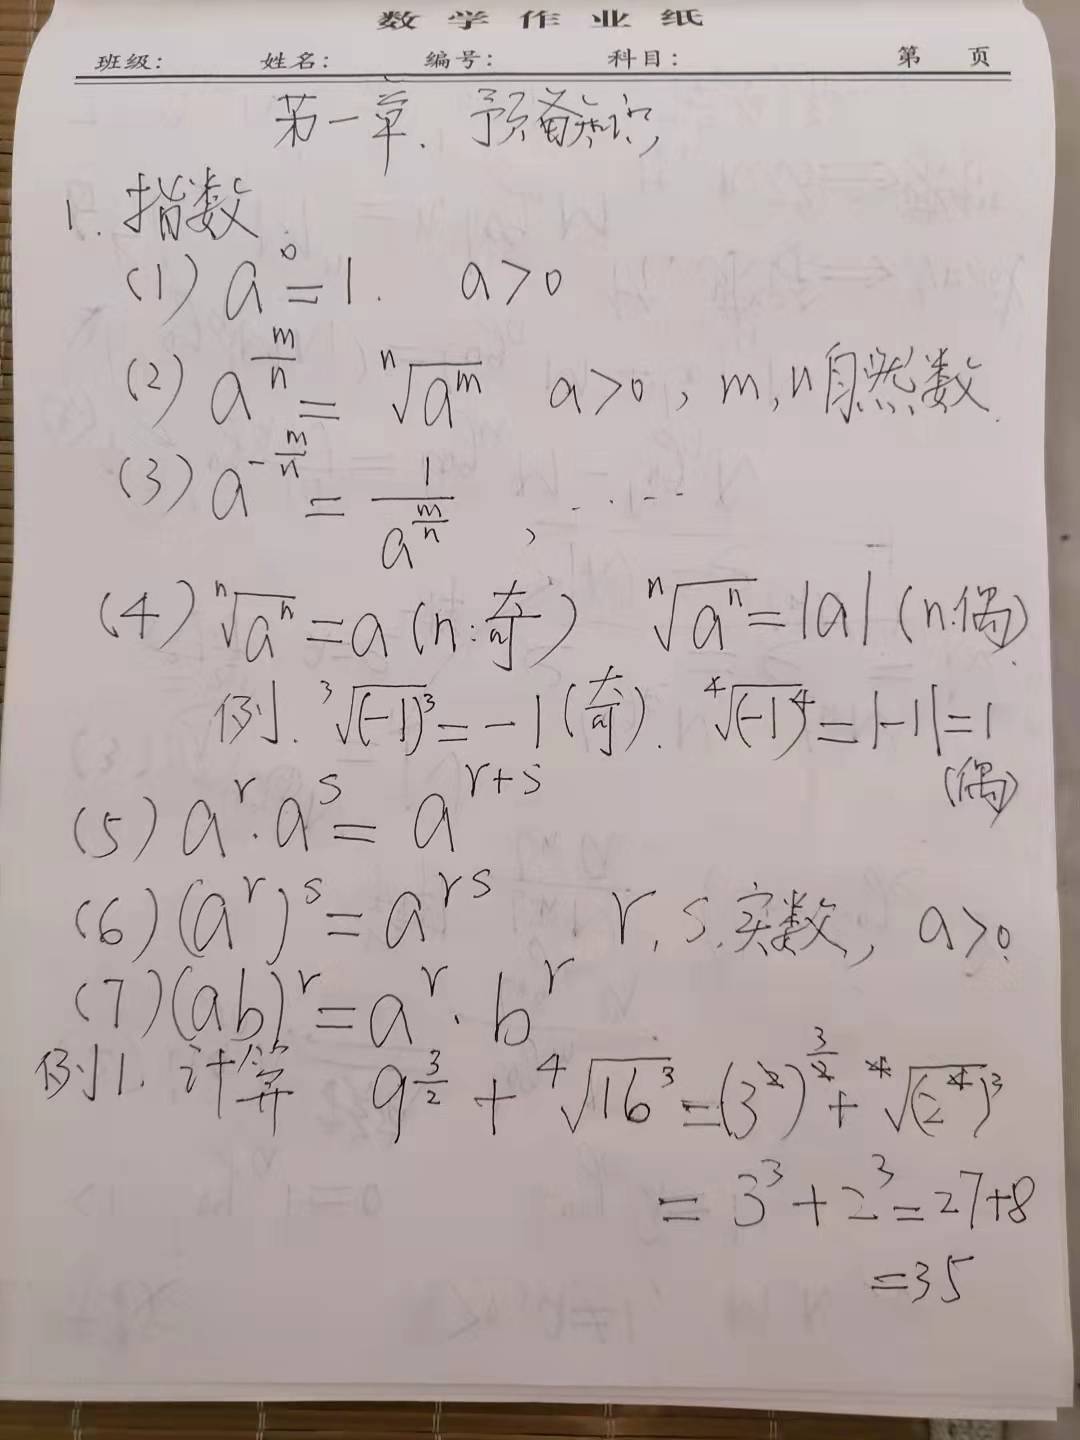 数学作业纸
班级: 姓名: 编号: 科目: 第 页
第一章. 预备知识
1. 指数.
(1) a⁰ = 1. a>0
(2) a^{m/n} = ⁿ√(a^m) a>0, m,n自然数.
(3) a^{-m/n} = 1/a^{m/n}, ·····
(4) ⁿ√(aⁿ) = a (n:奇) ⁿ√(aⁿ) = |a| (n:偶).
例. ³√((-1)³) = -1 (奇). ⁴√((-1)⁴) = |-1| = 1
(偶)
(5) a^r · a^s = a^{r+s}
(6) (a^r)^s = a^{rs} r, s.实数, a>0.
(7) (ab)^r = a^r · b^r
例1. 计算 9^{3/2} + ⁴√(16³) = (3²)^{3/2} + ⁴√((2⁴)³)
= 3³ + 2³ = 27+8
= 35